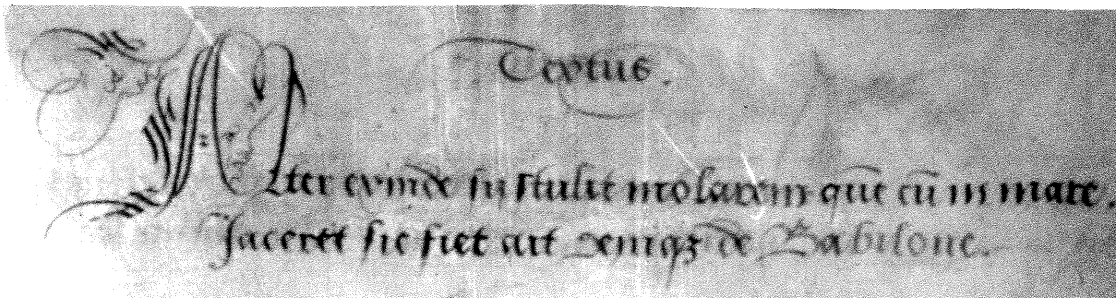 Textus.
Alter exinde sustulit molarem que cū in mare.
Jacerett sic fiet ait deniqz de Babilone.